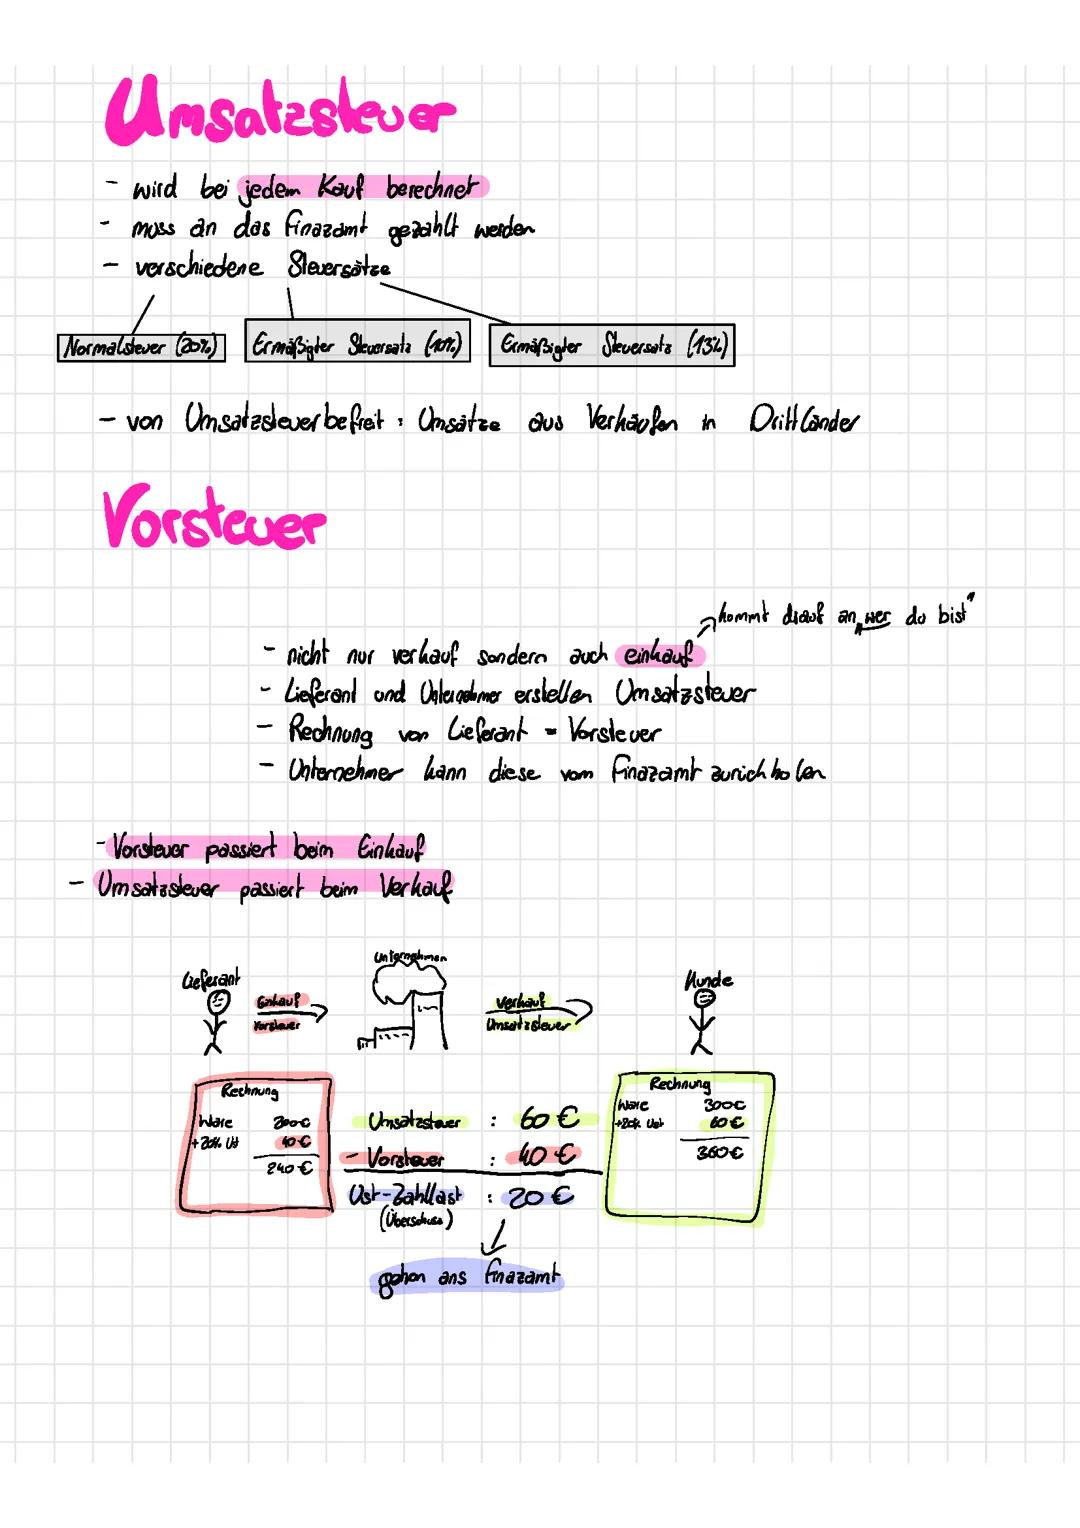 Umsatzsteuer
- wird bei jedem Kauf berechnet
- muss an das finazamt gezahlt werden
- verschiedene Steuersätze
Normalsteuer (20%) Ermäßigter Steuersatz (10%) Ermäßigter Steuersatz (13%)
- von Umsatzsteuer befreit : Umsätze aus Verkäufen in Drittländer
Vorsteuer
kommt drauf an "wer du bist"
- nicht nur verkauf sondern auch einkauf
- Lieferant und Unternehmer erstellen Umsatzsteuer
- Rechnung von Lieferant = Vorsteuer
- Unternehmer kann diese vom finazamt zurück holen
- Vorsteuer passiert beim Einkauf
- Umsatzsteuer passiert beim Verkauf
Lieferant Unternehmen Kunde
Einkauf Verkauf
Vorsteuer Umsatzsteuer
Rechnung Rechnung
Ware 200€ Ware 300€
+20% Ust 40€ +20% Ust 60€
240€ 360€
Umsatzsteuer : 60€
- Vorsteuer : 40€
Ust-Zahllast : 20€
(Überschuss)
gehen ans finazamt